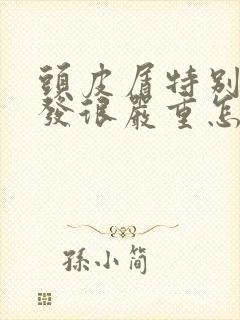 頭皮屑特別
發很嚴重怎
孫小簡